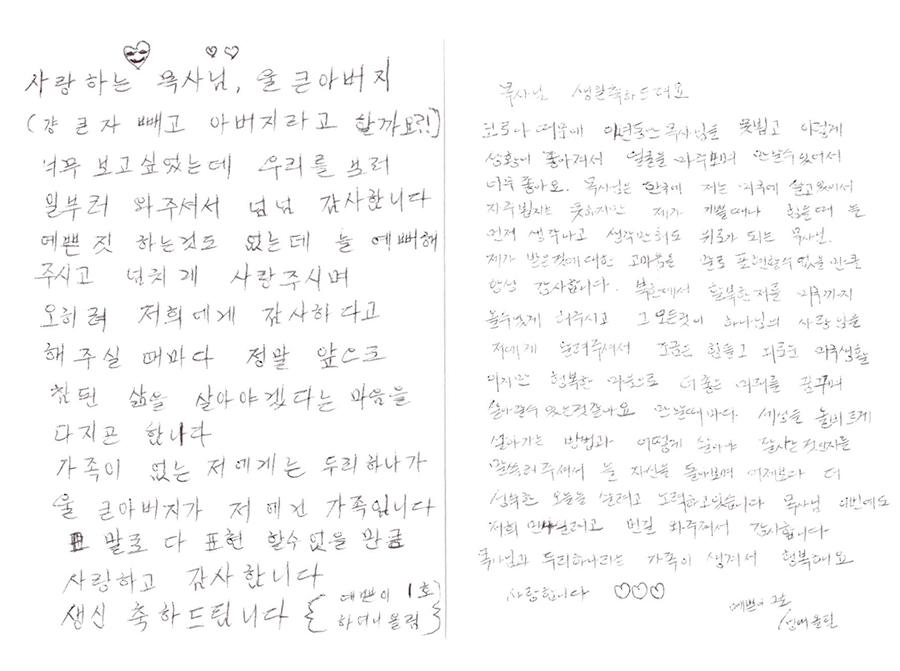 사랑하는 목사님, 울 큰아버지
(걍 큰자 빼고 아버지라고 할까요?!)
너무 보고싶었는데 우리를 보러
일부러 와주셔서 넘넘 감사합니다
예쁜 짓 하는것도 없는데 늘 예뻐해
주시고 넘치게 사랑주시며
오히려 저희에게 감사하다고
해 주실 때마다 정말 앞으로
참된 삶을 살아야겠다는 마음을
다지곤 합니다
가족이 없는 저에게는 두리하나가
울 큰아버지가 저에겐 가족입니다
말로 다 표현 할수 없을 만큼
사랑하고 감사합니다
생신 축하드립니다 { 예쁜이 1호
올림 }
목사님 생일축하드려요
코로나 때문에 이년동안 목사님을 못뵙고 이렇게
상황이 좋아져서 얼굴을 마주보며 만날수 있어서
너무 좋아요. 목사님은 한국에 저는 미국에 살고있어서
자주 뵙지는 못하지만 제가 기쁠때나 힘들때 늘
먼저 생각나고 생각만해도 위로가 되는 목사님.
제가 받은것에 대한 고마움을 말로 표현할수 없을 만큼
항상 감사합니다. 북한에서 탈북한 저를 미국까지
올수있게 해주시고 그 모든것이 하나님의 사랑임을
저에게 알려주셔서 조금은 힘들고 외로운 미국생활
이지만 행복한 마음으로 더 좋은 미래를 꿈꾸며
살아갈수 있는것같아요 만날때마다 세상을 올바르게
살아가는 방법과 어떻게 살아야 잘사는것인지를
말씀해주셔서 늘 자신을 돌아보며 어제보다 더
성숙한 오늘을 살려고 노력하고있습니다 목사님 이번에도
저희 만나려고 먼길 와주셔서 감사합니다
목사님과 두리하나라는 가족이 생겨서 행복해요
사랑합니다 ♡♡♡
예쁜이 2호
올림